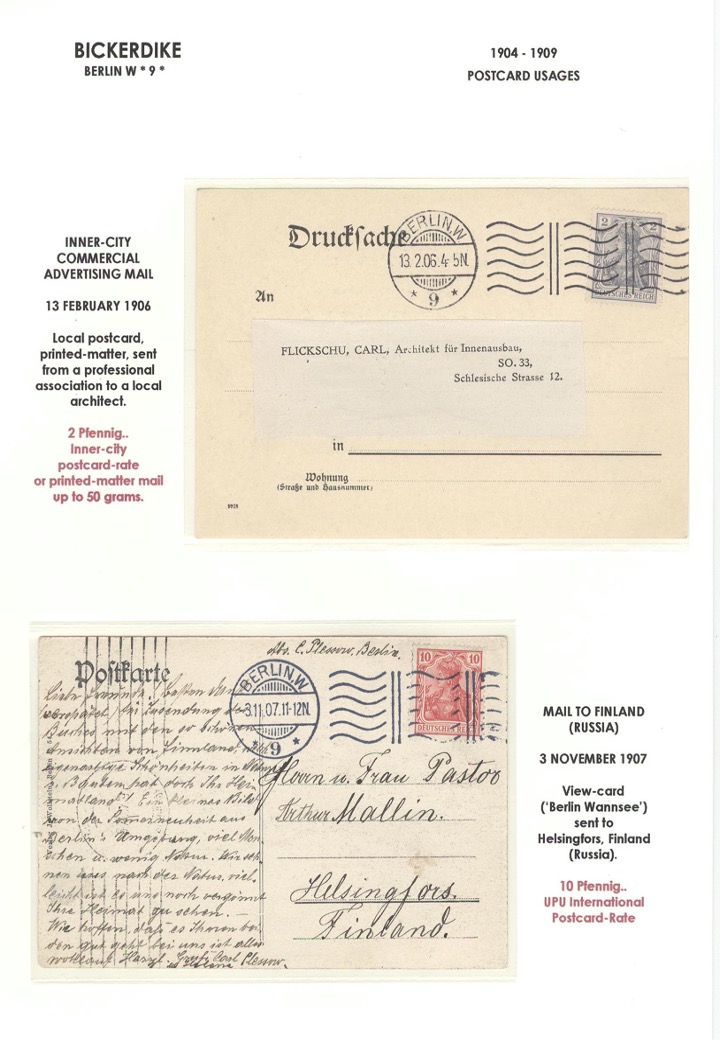 BICKERDIKE
BERLIN W * 9 *
1904 - 1909
POSTCARD USAGES
INNER-CITY
COMMERCIAL
ADVERTISING MAIL
13 FEBRUARY 1906
Local postcard,
printed-matter, sent
from a professional
association to a local
architect.
2 Pfennig..
Inner-city
postcard-rate
or printed-matter mail
up to 50 grams.
Drucksache
BERLIN.W
13.2.06.4-5N.
* 9 *
2 2
DEUTSCHES REICH
An
FLICKSCHU, CARL, Architekt für Innenausbau,
SO. 33,
Schlesische Strasse 12.
in
Wohnung
(Straße und Hausnummer)
Abs. C. Plessow, Berlin.
Postkarte
BERLIN.W
3.11.07.11-12N.
* 9 *
10 10
DEUTSCHES REICH
Ansichten von Finnland.
Berlin's Umgebung, viel Men-
schen u. wenig Natur. Wir seh-
nen uns nach der Natur, viel-
leicht ist es uns noch vergönnt
Ihre Heimat zu sehen. –
Wir hoffen, dass es Ihnen bei-
den gut geht bei uns ist alles
wohlauf. Herzl. Carl Plessow.
Herrn u. Frau Pastor
Arthur Mallin.
Helsingfors.
Finland.
MAIL TO FINLAND
(RUSSIA)
3 NOVEMBER 1907
View-card
('Berlin Wannsee')
sent to
Helsingfors, Finland
(Russia).
10 Pfennig..
UPU International
Postcard-Rate